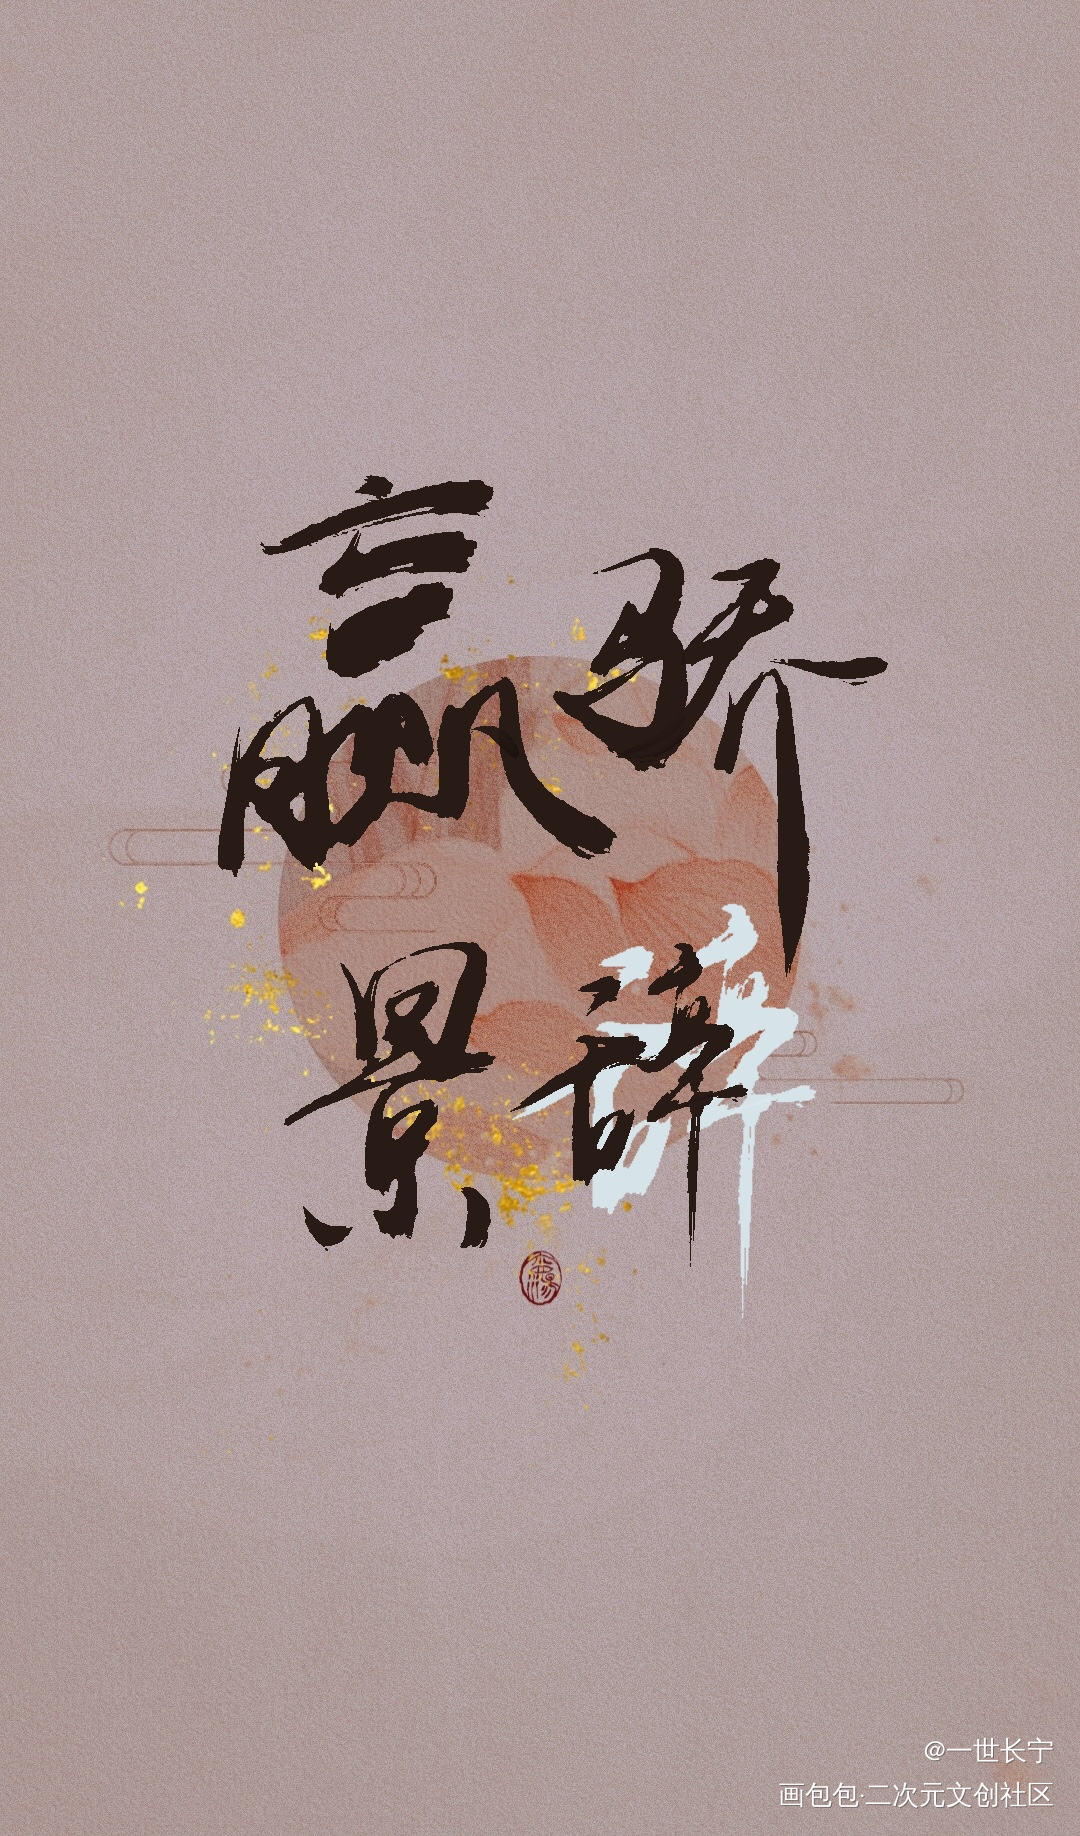 嬴骄
景辞
@一世长宁
画包包·二次元文创社区